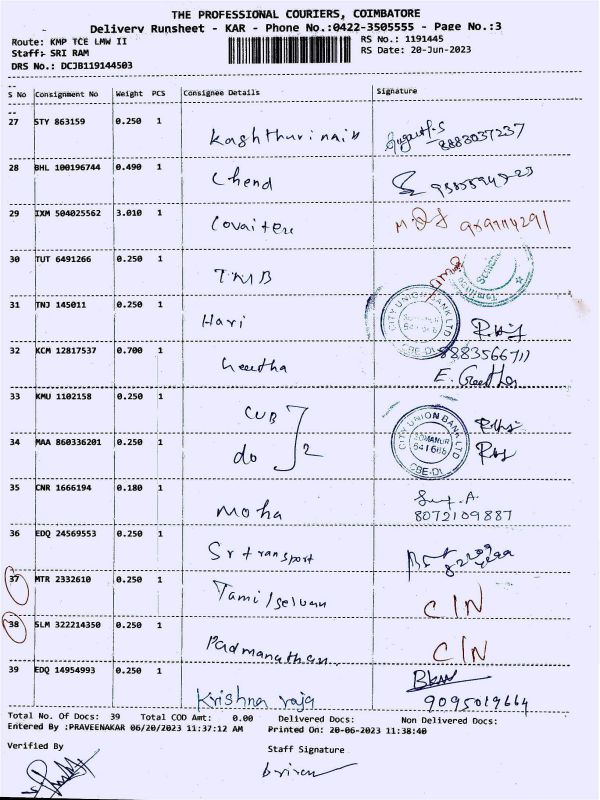 THE PROFESSIONAL COURIERS, COIMBATORE
Delivery Runsheet - KAR - Phone No.:0422-3505555 - Page No.:3
Route: KMP TCE LMW II RS No.: 1191445
Staff:- SRI RAM RS Date: 20-Jun-2023
DRS No.: DCJB119144503
S No Consignment No Weight PCS Consignee Details Signature
27 STY 863159 0.250 1 Kashthurinaik 8883037237
28 BHL 100196744 0.490 1 Chend
29 IXM 504025562 3.010 1 Covaiteu
30 TUT 6491266 0.250 1 TMB
31 TNJ 145011 0.250 1 Hari CITY UNION BANK LTD SOMANUR 641668 CBE-DT
32 KCM 12817537 0.700 1 Geetha 8883566711
E. Geetha
33 KMU 1102158 0.250 1 CUB
34 MAA 860336201 0.250 1 do 2 CITY UNION BANK LTD SOMANUR 641668 CBE-DT
35 CNR 1666194 0.180 1 Moha 8072109887
36 EDQ 24569553 0.250 1 Sr transport
37 MTR 2332610 0.250 1 Tamilselvan C/N
38 SLM 322214350 0.250 1 Padmanathan C/N
39 EDQ 14954993 0.250 1 Krishna raja 9095019664
Total No. Of Docs: 39 Total COD Amt: 0.00 Delivered Docs: Non Delivered Docs:
Entered By :PRAVEENAKAR 06/20/2023 11:37:12 AM Printed On: 20-06-2023 11:38:40
Verified By Staff Signature